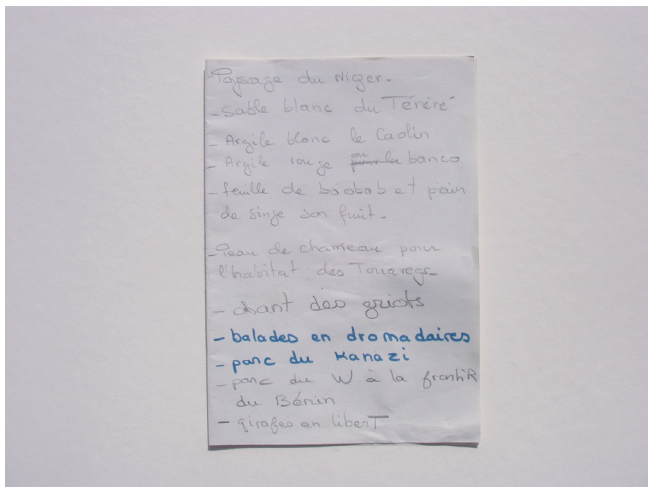 Paysage du Niger -
- Sable blanc du Ténéré
- Argile blanc le Caolin
- Argile rouge ou banco
- feuille de baobab et pain
de singe son fruit -
- Peau de chameau pour
l'habitat des Touaregs -
- chant des griots
- balades en dromadaires
- parc du Kanazi
- parc du W à la frontiR
du Bénin
- girafes en liberT